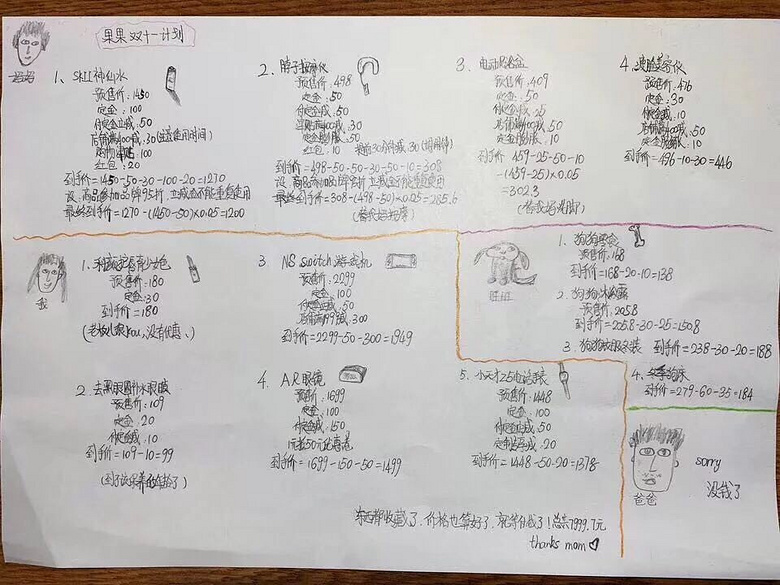 果果双十一计划
妈妈
1、SKII神仙水
预售价:1450
定金:100
付定金立减:50
店铺满400减:30(注意使用时间)
购物津贴:100
红包:20
到手价=1450-50-30-100-20=1270
设,商品参加品牌95折,立减金不能重复使用
最终到手价=1270-(1450-50)×0.05=1200
2、脖子按摩仪
预售价:498
定金:50
付定金立减:50
30
50
红包:10
到手价=498-50-50-30-50-10=308
设,商品参加品牌95折,立减金不能重复使用
最终到手价=308-(498-50)×0.05=285.6
3、电动
预售价:409
定金:50
付定金立减:25
店铺满400减:50
10
到手价=459-25-50-10
-(459-25)×0.05
=302.3
4、瘦脸美容仪
预售价:476
定金:30
付定金立减:10
到手价=496-10-30=446
我
1、
预售价:180
定金:30
到手价=180
没有优惠
2、去黑眼圈补水眼膜
预售价:109
定金:20
付定金减:10
到手价=109-10=99
(到了该保养的年龄了)
3、NS switch游戏机
预售价:2299
定金:100
付定金立减:50
300
到手价=2299-50-300=1949
4、AR眼镜
预售价:1699
定金:100
付定金减:150
1元抢50元优惠卷
到手价=1699-150-50=1499
5、小天才Z5电话手表
预售价:1448
定金:100
付定金减:50
20
到手价=1448-50-20=1378
旺旺
1、狗狗零食
预售价:168
到手价=168-20-10=138
2、狗狗沐浴露
预售价:205.8
到手价=205.8-30-25=150.8
3、狗狗 到手价=238-30-20=188
4、
到手价=279-60-35=184
爸爸
sorry
没钱了
东西都收藏了,价格也算好了,就等付钱了!总共7999.7元
thanks mom